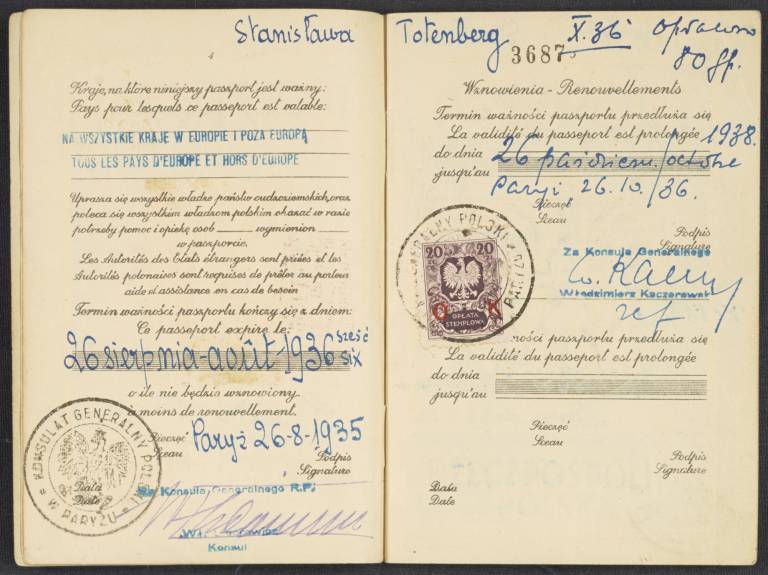 Stanisława
4
Kraje, na które niniejszy paszport jest ważny:
Pays pour lesquels ce passeport est valable:
NA WSZYSTKIE KRAJE W EUROPIE I POZA EUROPĄ
TOUS LES PAYS D'EUROPE ET HORS D'EUROPE
Uprasza się wszystkie władze państw cudzoziemskich, oraz
poleca się wszystkim władzom polskim okazać w razie
potrzeby pomoc i opiekę osob____ wymienion____
w paszporcie.
Les Autorités des Etats étrangers sont priées et les
Autorités polonaises sont requises de prêter au porteur
aide et assistance en cas de besoin
Termin ważności paszportu kończy się z dniem:
Ce passeport expire le:
26 sierpnia-août-1936 sześć
six
o ile nie będzie wznowiony.
à moins de renouvellement.
Pieczęć
Sceau
Paryż 26-8-1935
Podpis
Signature
KONSULAT GENERALNY POLSKI
W PARYŻU
Data
Date
Za Konsula Generalnego R.P.
Konsul
Totenberg
X.36
3687
80 gr.
Wznowienia - Renouvellements
Termin ważności paszportu przedłuża się
La validité du passeport est prolongée
do dnia
jusqu'au
26 październ./octobre 1938.
Paryż 26.10./36.
Pieczęć
Sceau
Podpis
Signature
Za Konsula Generalnego
Włodzimierz Kaczorowski
ref
20 20
OPŁATA
STEMPLOWA
O K
ności paszportu przedłuża się
La validité du passeport est prolongée
do dnia
jusqu'au
Pieczęć
Sceau
Podpis
Signature
Data
Date